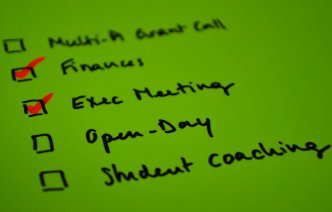 Multi-PI Grant Call
Finances
Exec Meeting
Open-Day
Student Coaching